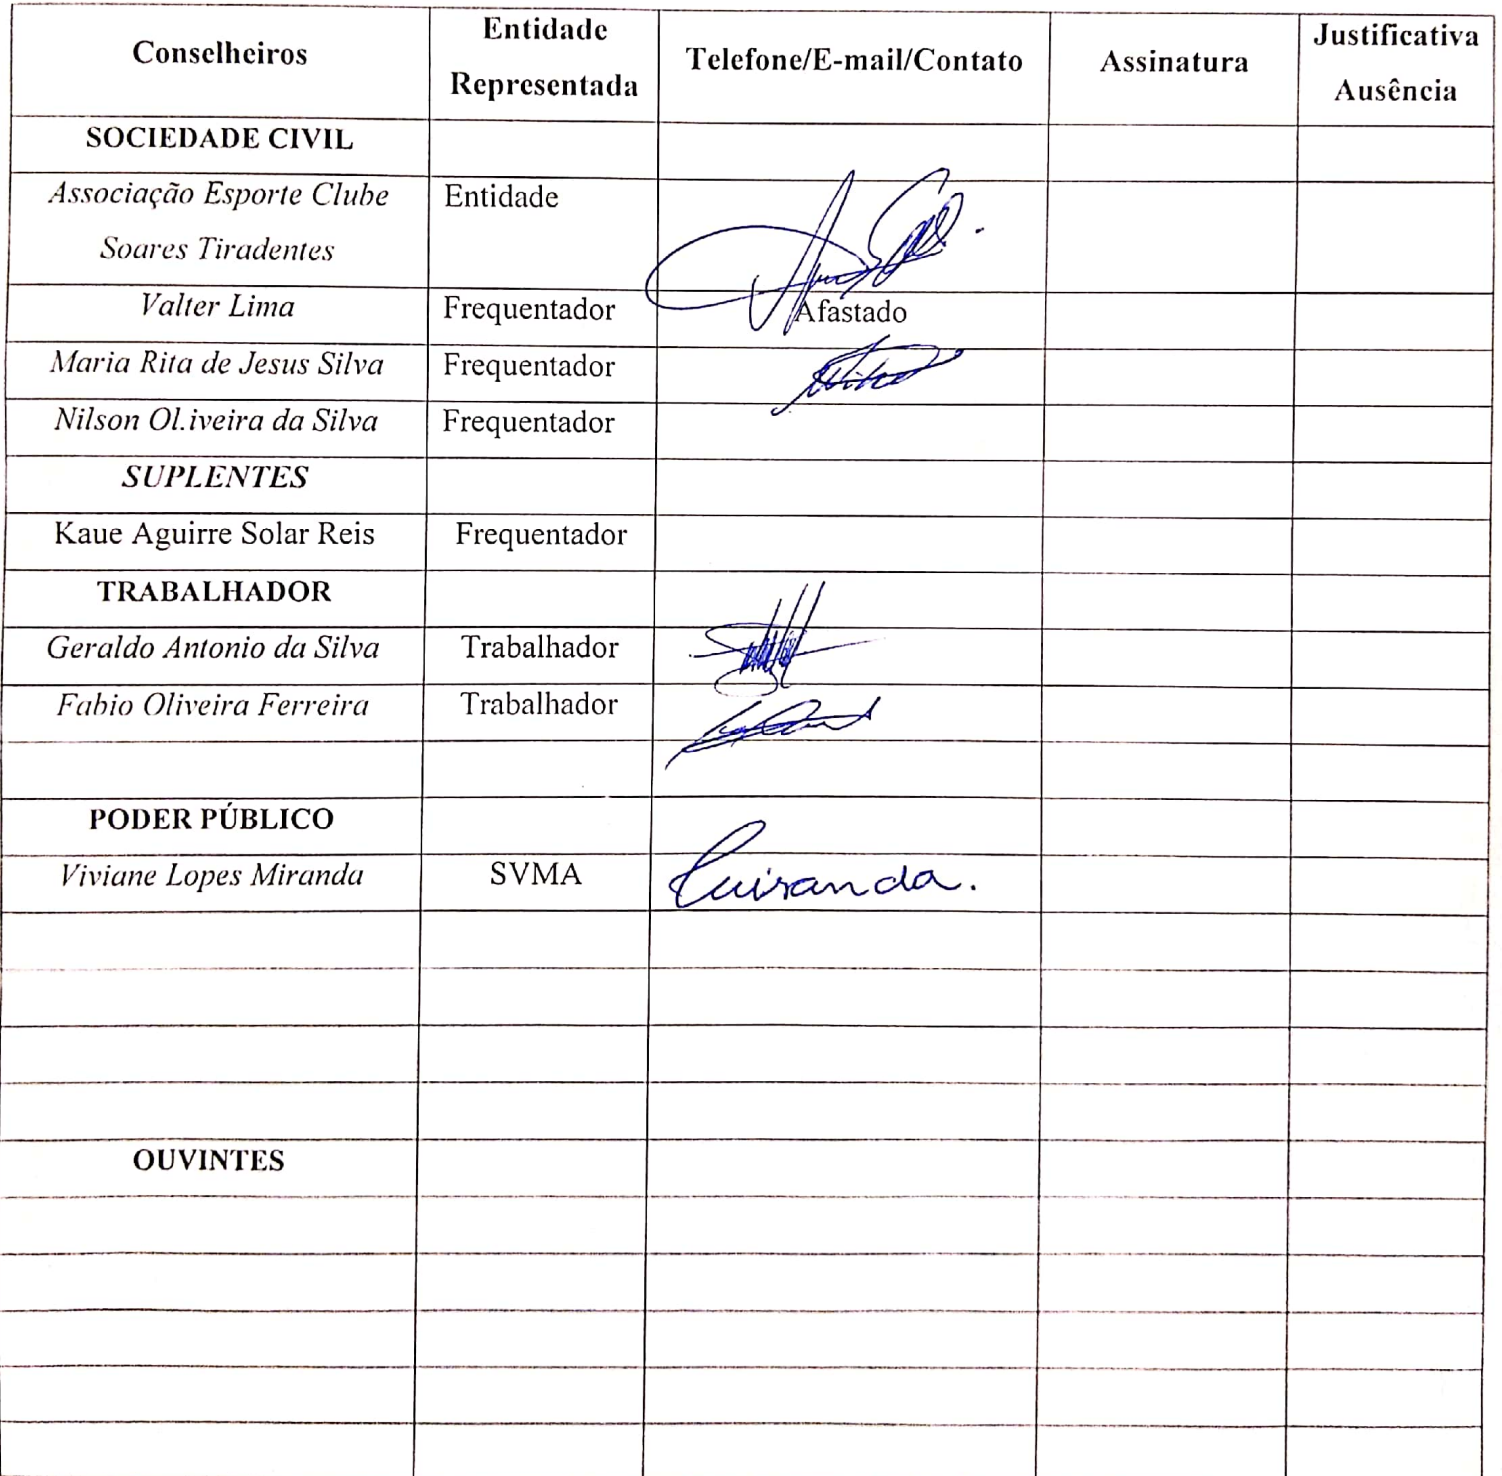 Conselheiros Entidade Representada Telefone/E-mail/Contato Assinatura Justificativa Ausência
SOCIEDADE CIVIL
Associação Esporte Clube Entidade
Soares Tiradentes
Valter Lima Frequentador Afastado
Maria Rita de Jesus Silva Frequentador
Nilson Ol.iveira da Silva Frequentador
SUPLENTES
Kaue Aguirre Solar Reis Frequentador
TRABALHADOR
Geraldo Antonio da Silva Trabalhador
Fabio Oliveira Ferreira Trabalhador
PODER PÚBLICO
Viviane Lopes Miranda SVMA
OUVINTES